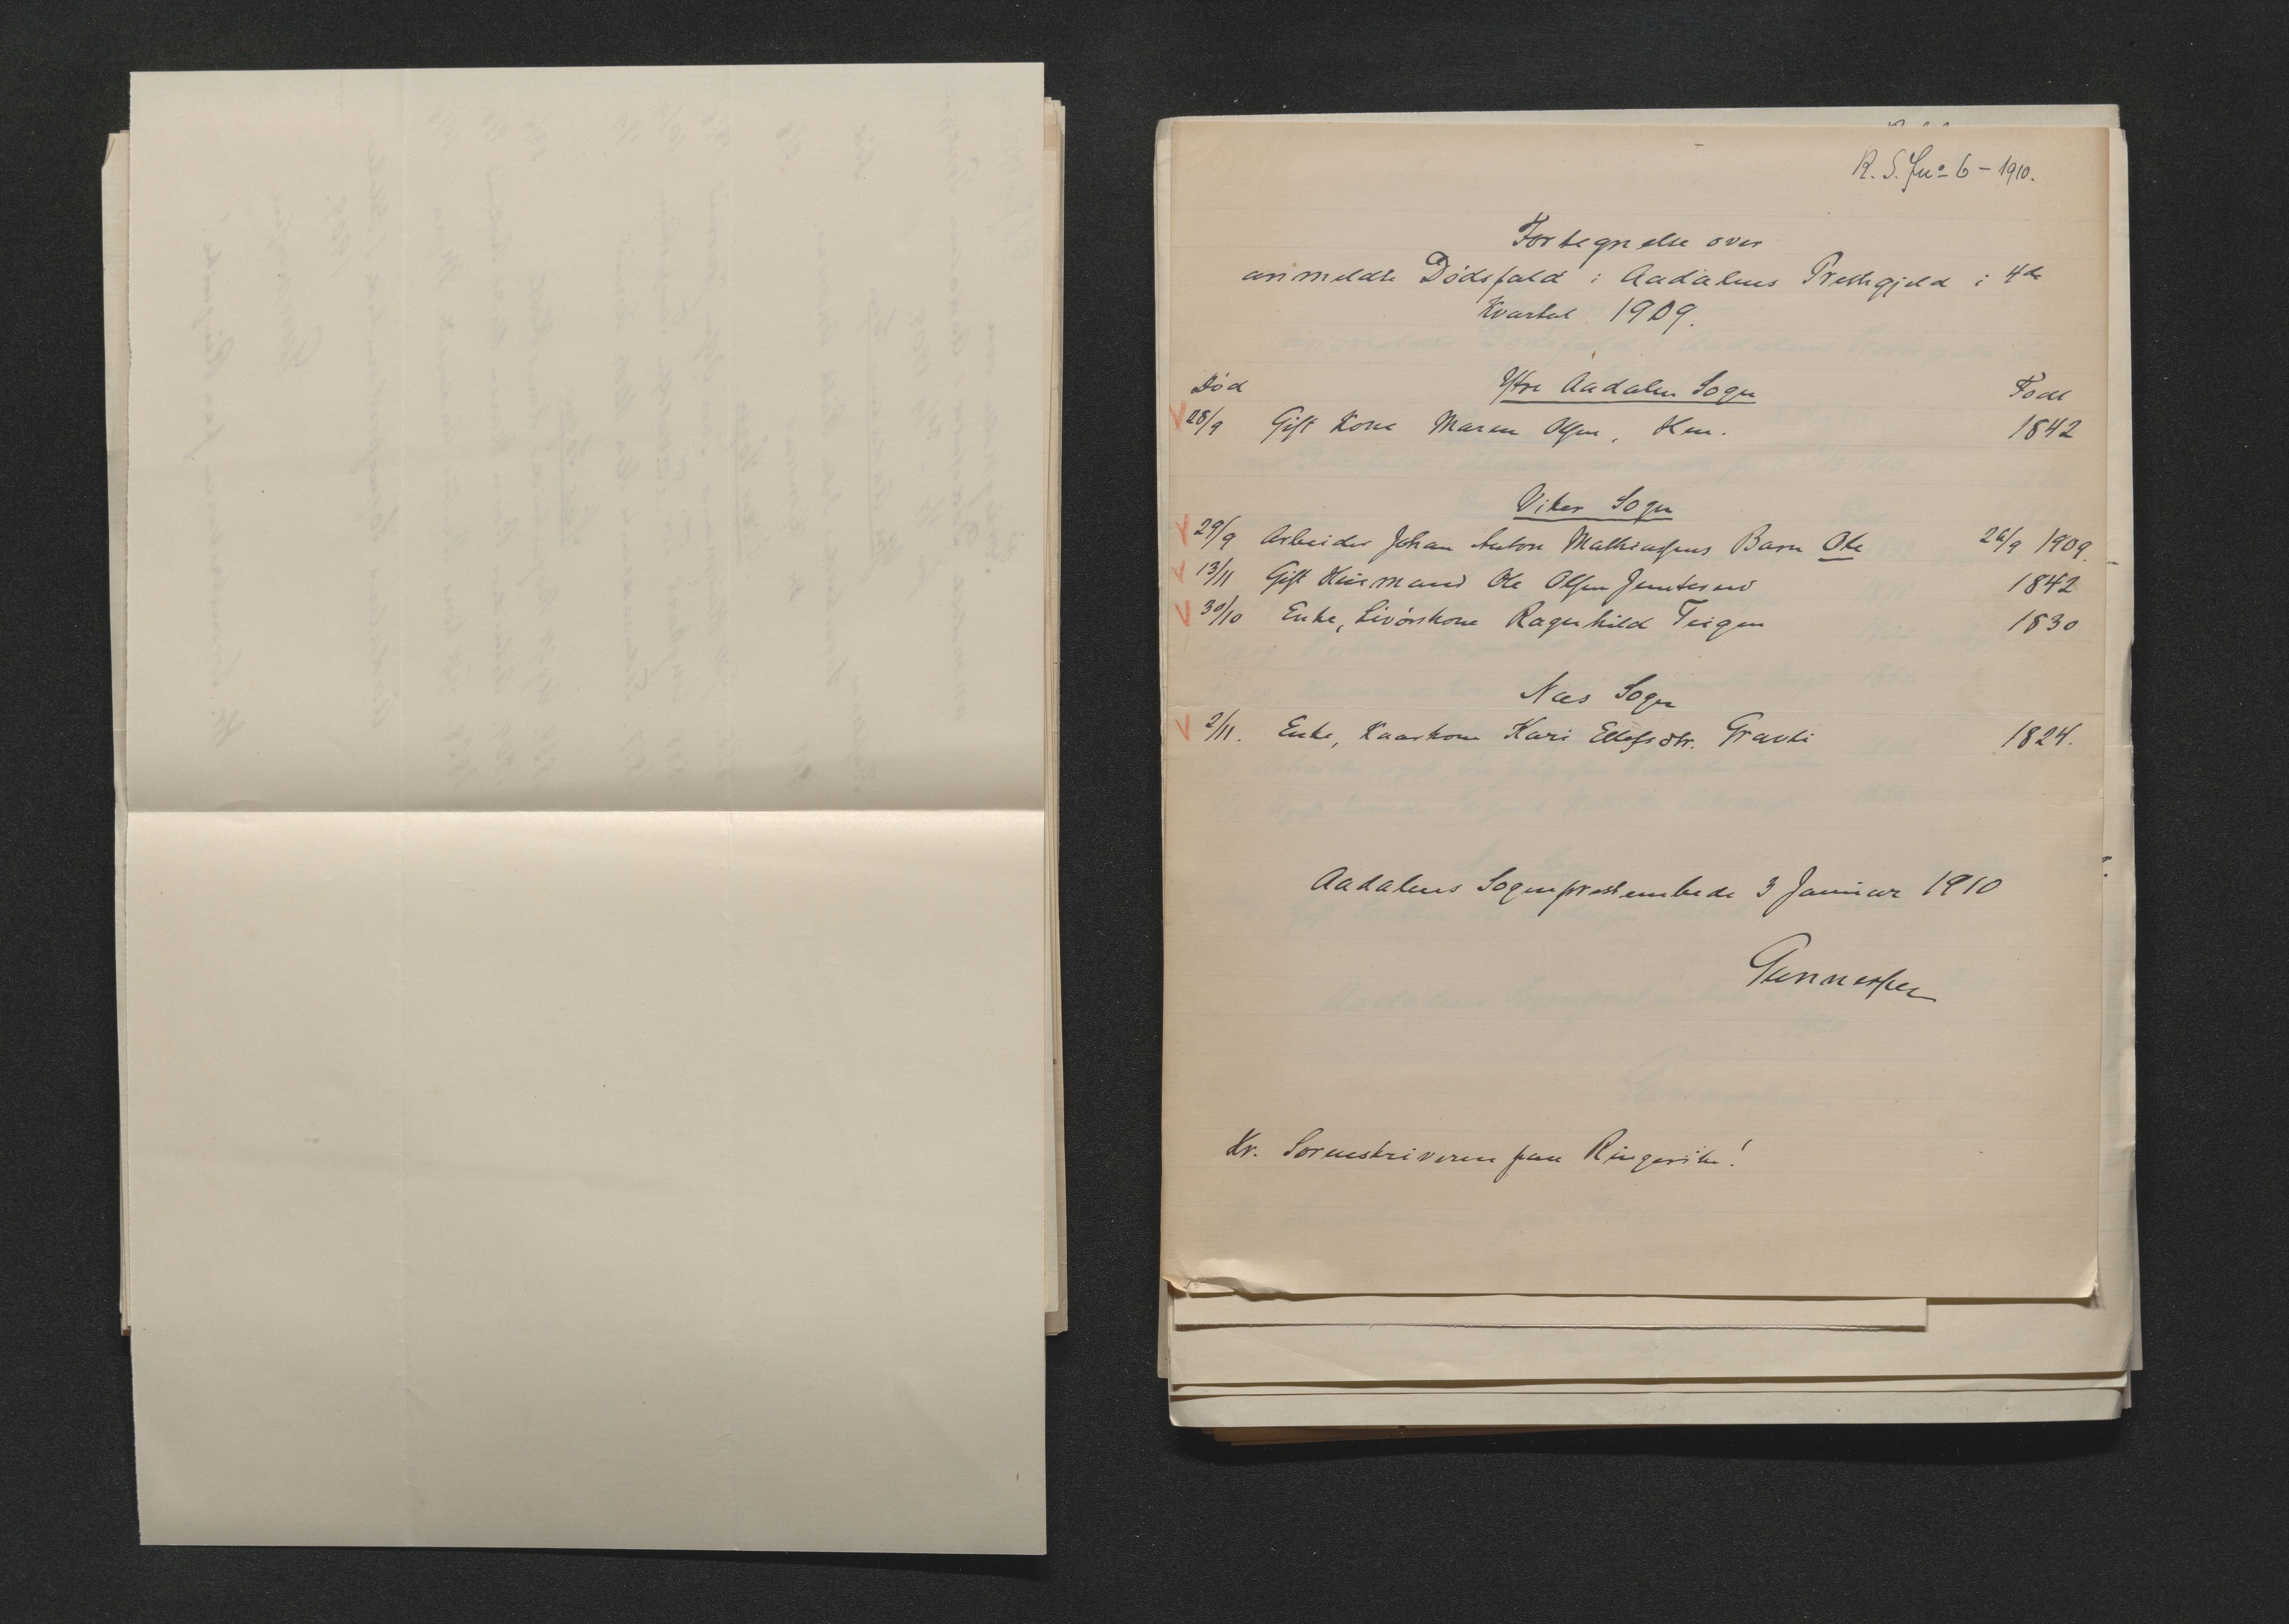 R. S. Jno 6 – 1910.
Fortegnelse over
anmeldte Dødsfald i Aadalens Prestegjeld i 4de
Kvartal 1909.
Død Ytre Aadalen Sogn Født
28/9 Gift Kone Maren Olsen, Hen. 1842
Viker Sogn
29/9 Arbeider Johan Anton Mathiassens Barn Ole 26/9 1909
13/11 Gift Husmand Ole Olsen 1842
30/10 Enke, Livørskone Ragnhild Teigen 1830
Næs Sogn
2/11. Enke, Kaarkone Kari Ellefsdtr. Gravli 1824.
Aadalens Sogneprestembede 3 Januar 1910
Gunnersen
Hr. Sorenskriveren paa Ringerike!